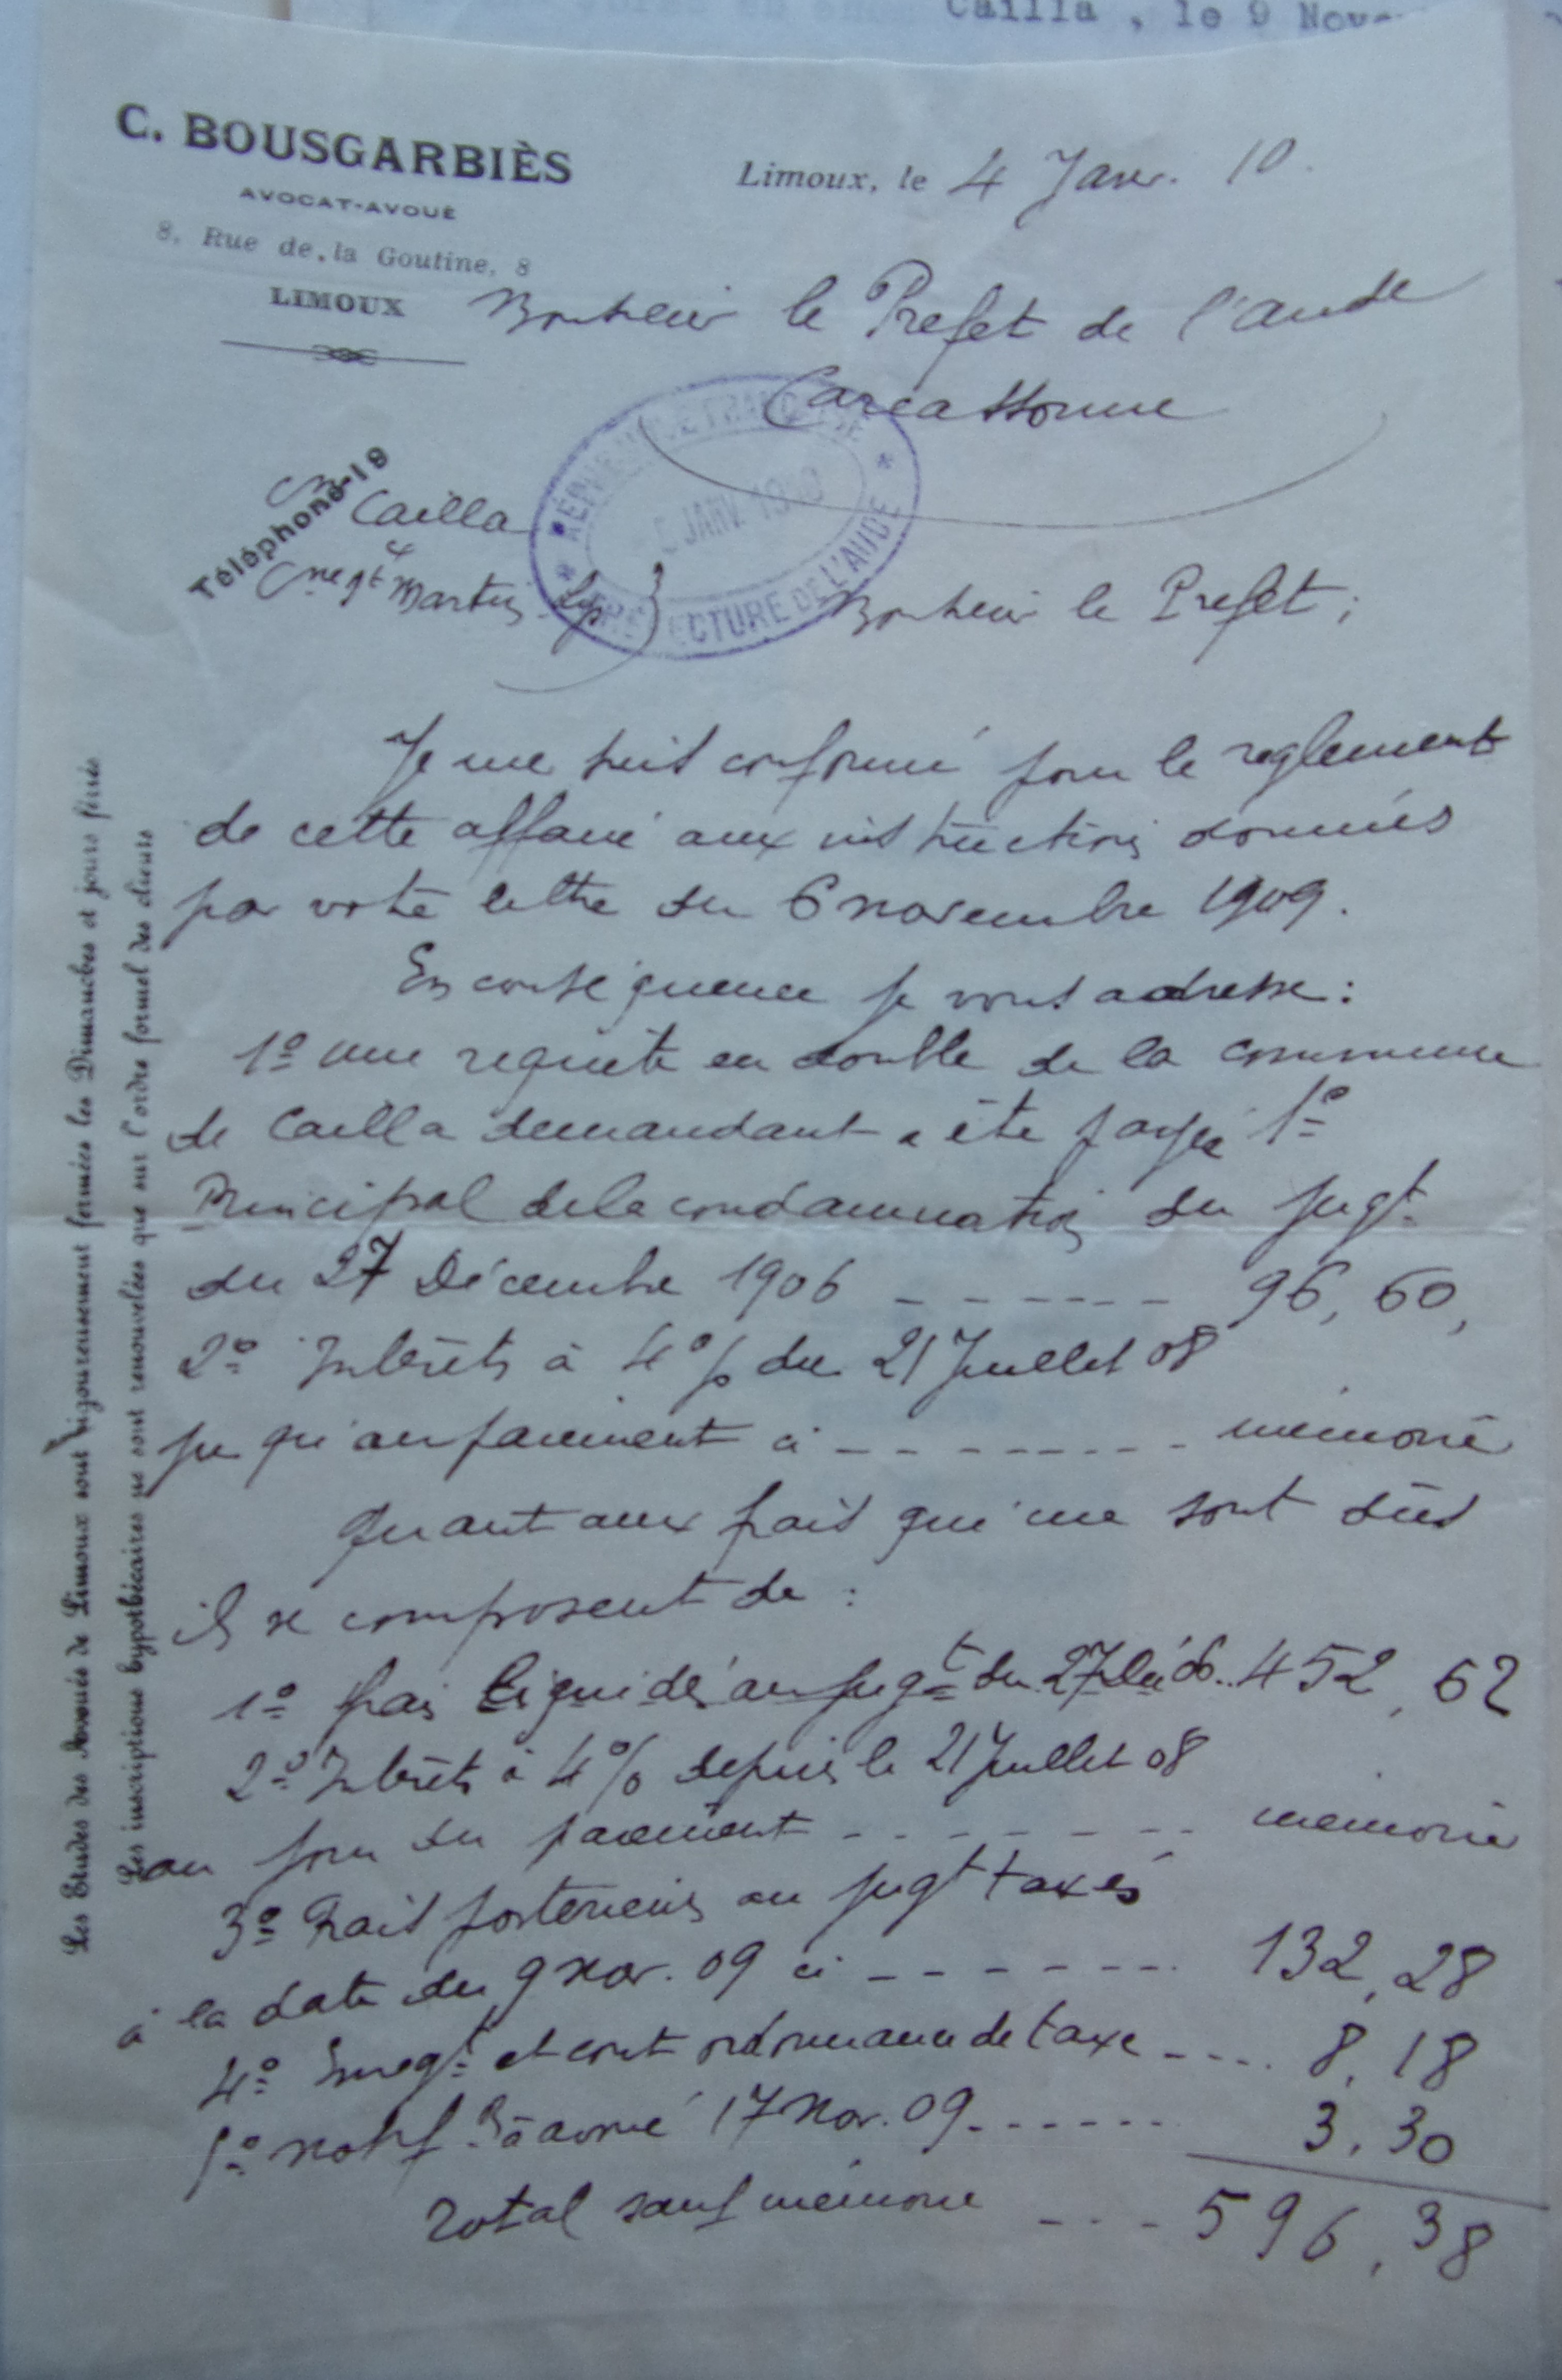 Cailla , le 9 Nove
C. BOUSGARBIÈS
AVOCAT-AVOUÉ
8, Rue de la Goutine, 8
LIMOUX
Limoux, le 4 Janv. 10.
Monsieur le Prefet de l'Aude
Carcassonne
Téléphone-19
Cailla
Martin
RÉPUBLIQUE FRANÇAISE
JANV. 19
PRÉFECTURE DE L'AUDE
Monsieur le Prefet ;
Je me suis conformé pour le reglement
de cette affaire aux instructions données
par votre lettre du 6 novembre 1909.
En conséquence je vous adresse :
1º une requête en double de la commune
de Cailla demandant a être payée 1º
Principal de la condamnation du jugt
du 27 Décembre 1906 - - - - - - 96, 60,
2º Intérêts à 4 % du 21 Juillet 08
jusqu'au paiement ci - - - - - - - - memoire
Quant aux frais qui me sont dûs
ils se composent de :
1º frais liquidés au jugt du 27 Déc 06.. 452, 62
2º Intérêts à 4 % depuis le 21 Juillet 08
au jour du paiement - - - - - - - memoire
3º Frais posterieurs au jugt taxés
à la date du 9 Nov. 09 ci - - - - - - 132, 28
4º Enregt et cout ordonnance de taxe - - - - 8, 18
5º notifon à avoué 17 Nov. 09 - - - - - - 3, 30
Total sauf mémoire - - - 596, 38
Les Etudes des Avoués de Limoux sont rigoureusement fermées les Dimanches et jours fériés
Les inscriptions hypothécaires ne sont renouvelées que sur l'ordre formel des clients